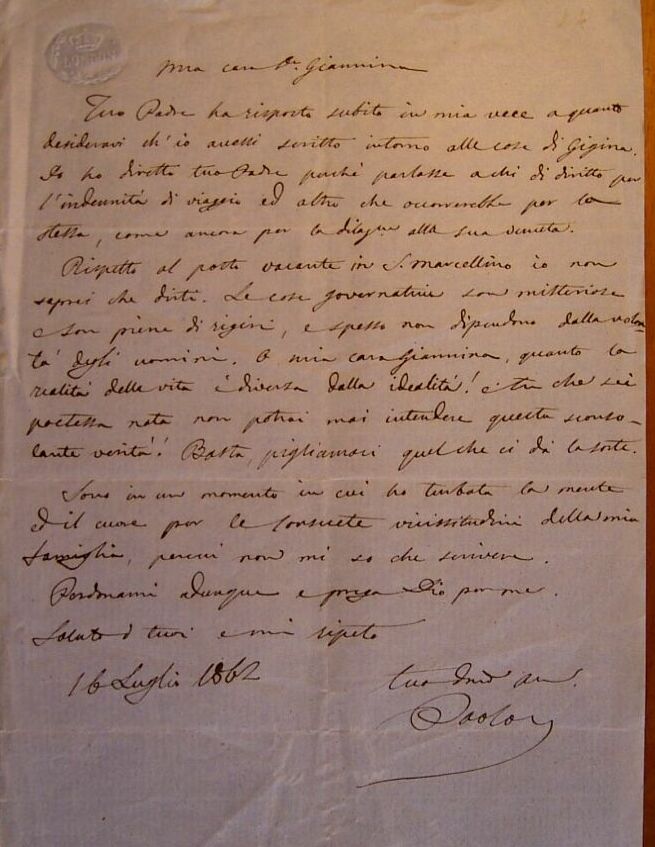 LONDON
mia cara Da. Giannina
Tuo Padre ha risposto subito in mia vece a quanto
desideravi ch'io avessi scritto intorno alle cose di Gigina.
Io ho diretto tuo Padre perchè parlasse a chi di diritto per
l'indennità di viaggio ed altro che occorrerebbe per la
stessa, come ancora per la alla sua venuta.
Rispetto al posto vacante in S. Marcellino io non
saprei che dirti. Le cose governative son misteriose
e son piene di rigiri, e spesso non dipendono dalla volon-
tà degli uomini. O mia cara Giannina, quanto la
realità della vita è diversa dalla idealità! e tu che sei
poetessa nata non potrai mai intendere questa scons-
lante verità! Basta, pigliamoci quel che ci dà la sorte.
Sono in un momento in cui ho turbata la mente
ed il cuore per le consuete vicissitudini della mia
famiglia, perciò non mi so che scrivere.
Perdonami adunque e prega Dio per me.
Saluto i tuoi e mi ripeto
16 Luglio 1862
tuo
Paolo